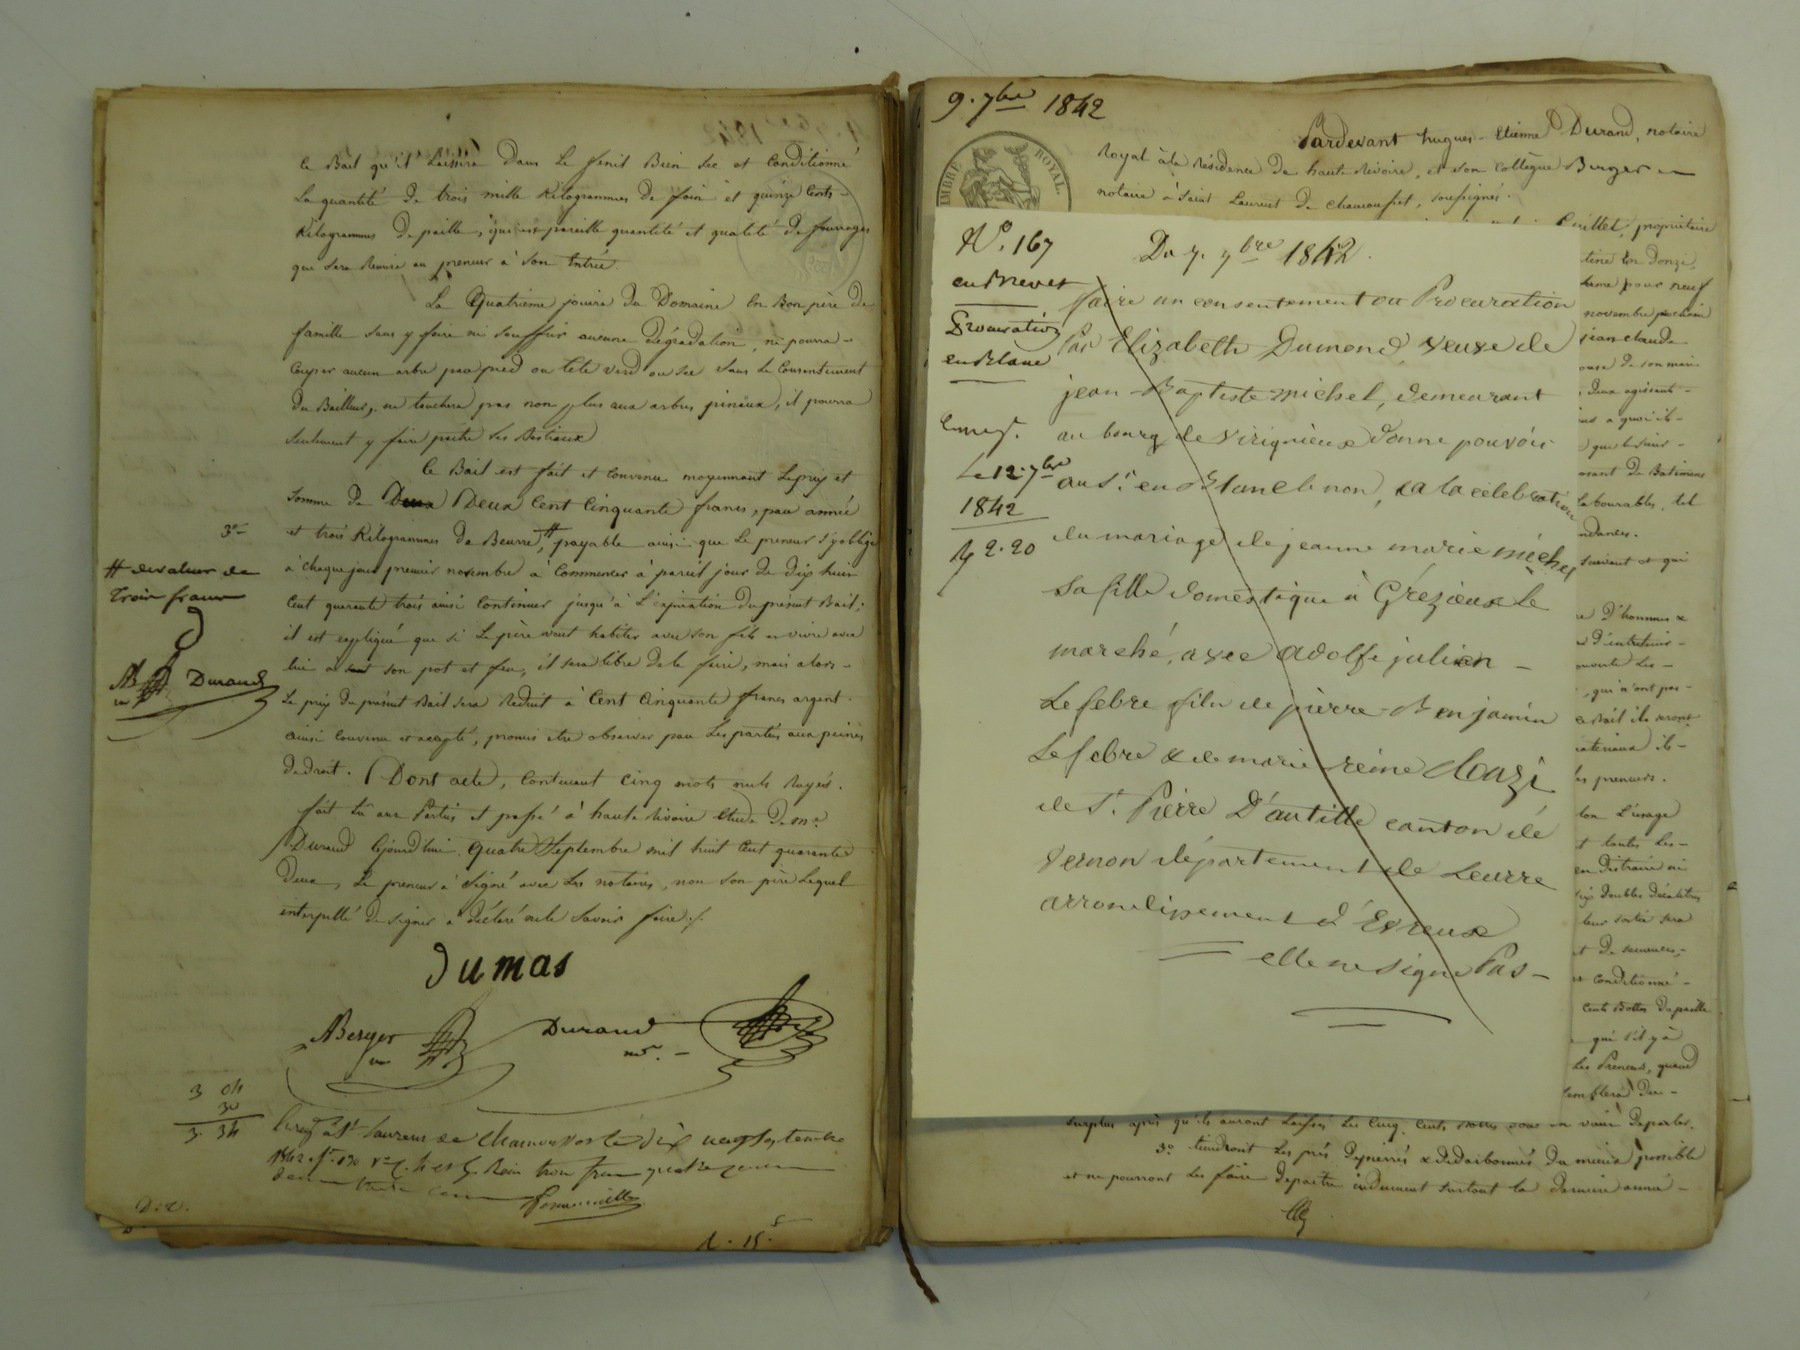 ce Bail qu'il Laissera Dans Le fenil Bien Sec et Conditionné
La quantité De trois mille Kilogrammes De foin et quinze Cents
Kilogrammes De paille, que est pareille quantité et qualité de fourrages
que sera Remise au preneur à Son Entrée.
La Quatrième jouira Du Domaine En Bon père De
famille Sans y faire ni Souffrir aucune Dégradation, ne pourra
Couper aucun arbre par pied ou tête verd ou Sec Sans Le Consentement
Du Bailleur, ne touchera pas non plus aux arbres pineaux, il pourra
Seulement y faire paitre Ses Bestiaux
Ce Bail est fait et Convenu moyennant Le prix et
Somme De Deux Cent Cinquante francs, par année
3°
et trois Kilogrammes De Beurre, # payable ainsi que Le preneur s'y oblige
# de valeur de
trois francs
à chaque jour premier novembre à Commencer à pareil jour De Dix huit
Cent quarante trois ainsi Continuer jusqu'à L'expiration Du présent Bail;
il est expliqué que si Le père veut habiter avec son fils et vivre avec
lui à son pot et feu, il sera libre De le faire, mais alors
AB Durand
Le prix Du présent Bail Sera Réduit à Cent Cinquante francs argent.
ainsi Convenu et accepté, promis etre observer par Les parties aux peines
De droit. Dont acte, Contenant Cinq mots nuls Rayés.
fait Lû aux Parties et passé à haute Rivoire Etude De Me
Durand Cejourd'hui Quatre Septembre mil huit Cent quarante
Deux, Le preneur a Signé avec Les notaires, non Son père Lequel
interpellé De signer a Déclaré ne le Savoir faire./.
Dumas
ABerger
Durand
nre
3 04
30
3 34
Enreg à St Laurent de Chamousset le dix neuf septembre
1842 f° 170 trois francs quatre
D. r.
1. 15.
9. 7bre 1842
TIMBRE ROYAL.
Pardevant hugues-Etienne Durand, notaire
Royal à la Résidence De haute Rivoire, et son Collègue Berger
notaire à Saint Laurent De chamousset, soussignés.
Cuillet, propriétaire
N°. 167
Du 7. 7bre 1842.
en Brevet
faire un consentement ou Procuration
Procuration
en Blanc
Par Elizabeth Dumond, veuve de
jean-Baptiste michel, demeurant
Enreg.
au bourg de virignieux donne pouvoir
Le 12. 7bre
au Sr. en Blanc le non, a la célébration
1842
2.20
du mariage de jeanne marie michel
sa fille domestique à Grézieux le
marché, avec Adolfe julien
Lefebre fils de pierre-Benjamin
Lefebre & de marie reine
de St. Pierre D'autille canton de
vernon département de Leurre
arrondissement d'Evreux
elle ne signe Pas
pour neuf
novembre prochain
jean claude
De son mari
Deux agissant
Batiments
Labourables, tel
suivant et qui
D'hommes
D'entretenir
qui n'ont pas
Bail ils seront
Les preneurs.
L'usage
et toutes Les
Distraire ni
six Doubles Décalitres
leur sortie sera
et De semences,
Conditionné
Cents Bottes De paille
qui s'il y a
Les Preneurs, quand
semblera Du
surplus après qu'ils auront Laissés Les Cinq Cents Bottes
3° tiendront Les prés Dépierrés & Détaupinés Du mieux possible
et ne pourront Les faire Depaitre indument surtout la Dernière année